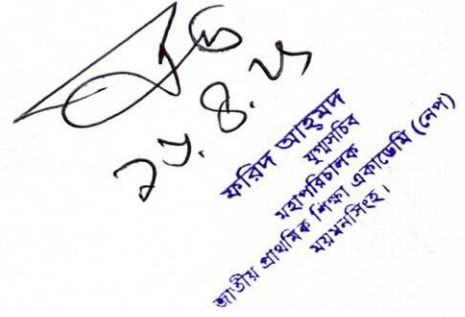 ফরিদ আহ্মদ
যুগ্মসচিব
মহাপরিচালক
জাতীয় প্রাথমিক শিক্ষা একাডেমি (নেপ)
ময়মনসিংহ।